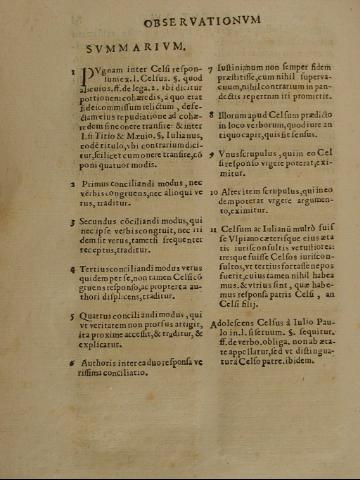 OBSERVATIONVM
SVMMARIVM.
1 PVgnam inter Celsi respon-
sum ex. l. Celsus. §. quod
alicuius. ff. de lega. 1. vbi dicitur
portionem cohæredis, a quo erat
fideicommissum relictum, defe-
ctam eius repudiatione ad cohæ-
redem sine onere transire: & inter
l. si Titio & Mæuio. §. Iulianus,
eodē titulo, vbi contrarium dici-
tur, scilicet cum onere transire, cō
poni quatuor modis.
2 Primus conciliandi modus, nec
verbis congruens, nec alioqui ve
rus, traditur.
3 Secundus cōciliandi modus, qui
nec ipse verbis congruit, nec iti
dem sit verus, tametsi frequenter
receptus, traditur.
4 Tertius conciliandi modus verus
quidem per se, non tamen Celsi cō
gruens responso, ac propterea au
thori displicens, traditur.
5 Quartus conciliandi modus, qui
vt veritatem non prorsus attigit,
ita proxime accessit, & traditur, &
explicatur.
6 Authoris interea duo responsa ve
rissima conciliatio.
7 Iustinianum non semper fidem
præstitisse, cum nihil superva-
cuum, nihil contrarium in pan-
dectis reperiri promittit.
8 Illorum apud Celsum prædicto
in loco verborum, quod iure an
tiquo capit, quis sit sensus.
9 Vnus scrupulus, qui in eo Cel
si responso vrgere poterat, exi-
mitur.
10 Alter item scrupulus, qui in eo
dem poterat vrgere argumen-
to, eximitur.
11 Celsum ac Iulianū multò fuis
se Vlpiano cæterisque eius æta
tis iurisconsultis vetustiores:
tresque fuisse Celsos iuriscon-
sultos, vt tertius fortasse nepos
fuerit, cuius tamen nihil habea
mus. & vtrius sint, quæ habe-
mus responsa patris Celsi, an
Celsi filij.
Adolescens Celsus à Iulio Pau-
lo in. l. si seruum. §. sequitur.
ff. de verbo. obliga. non ab æta-
te appellatur, sed vt distingua-
tur à Celso patre. ibidem.